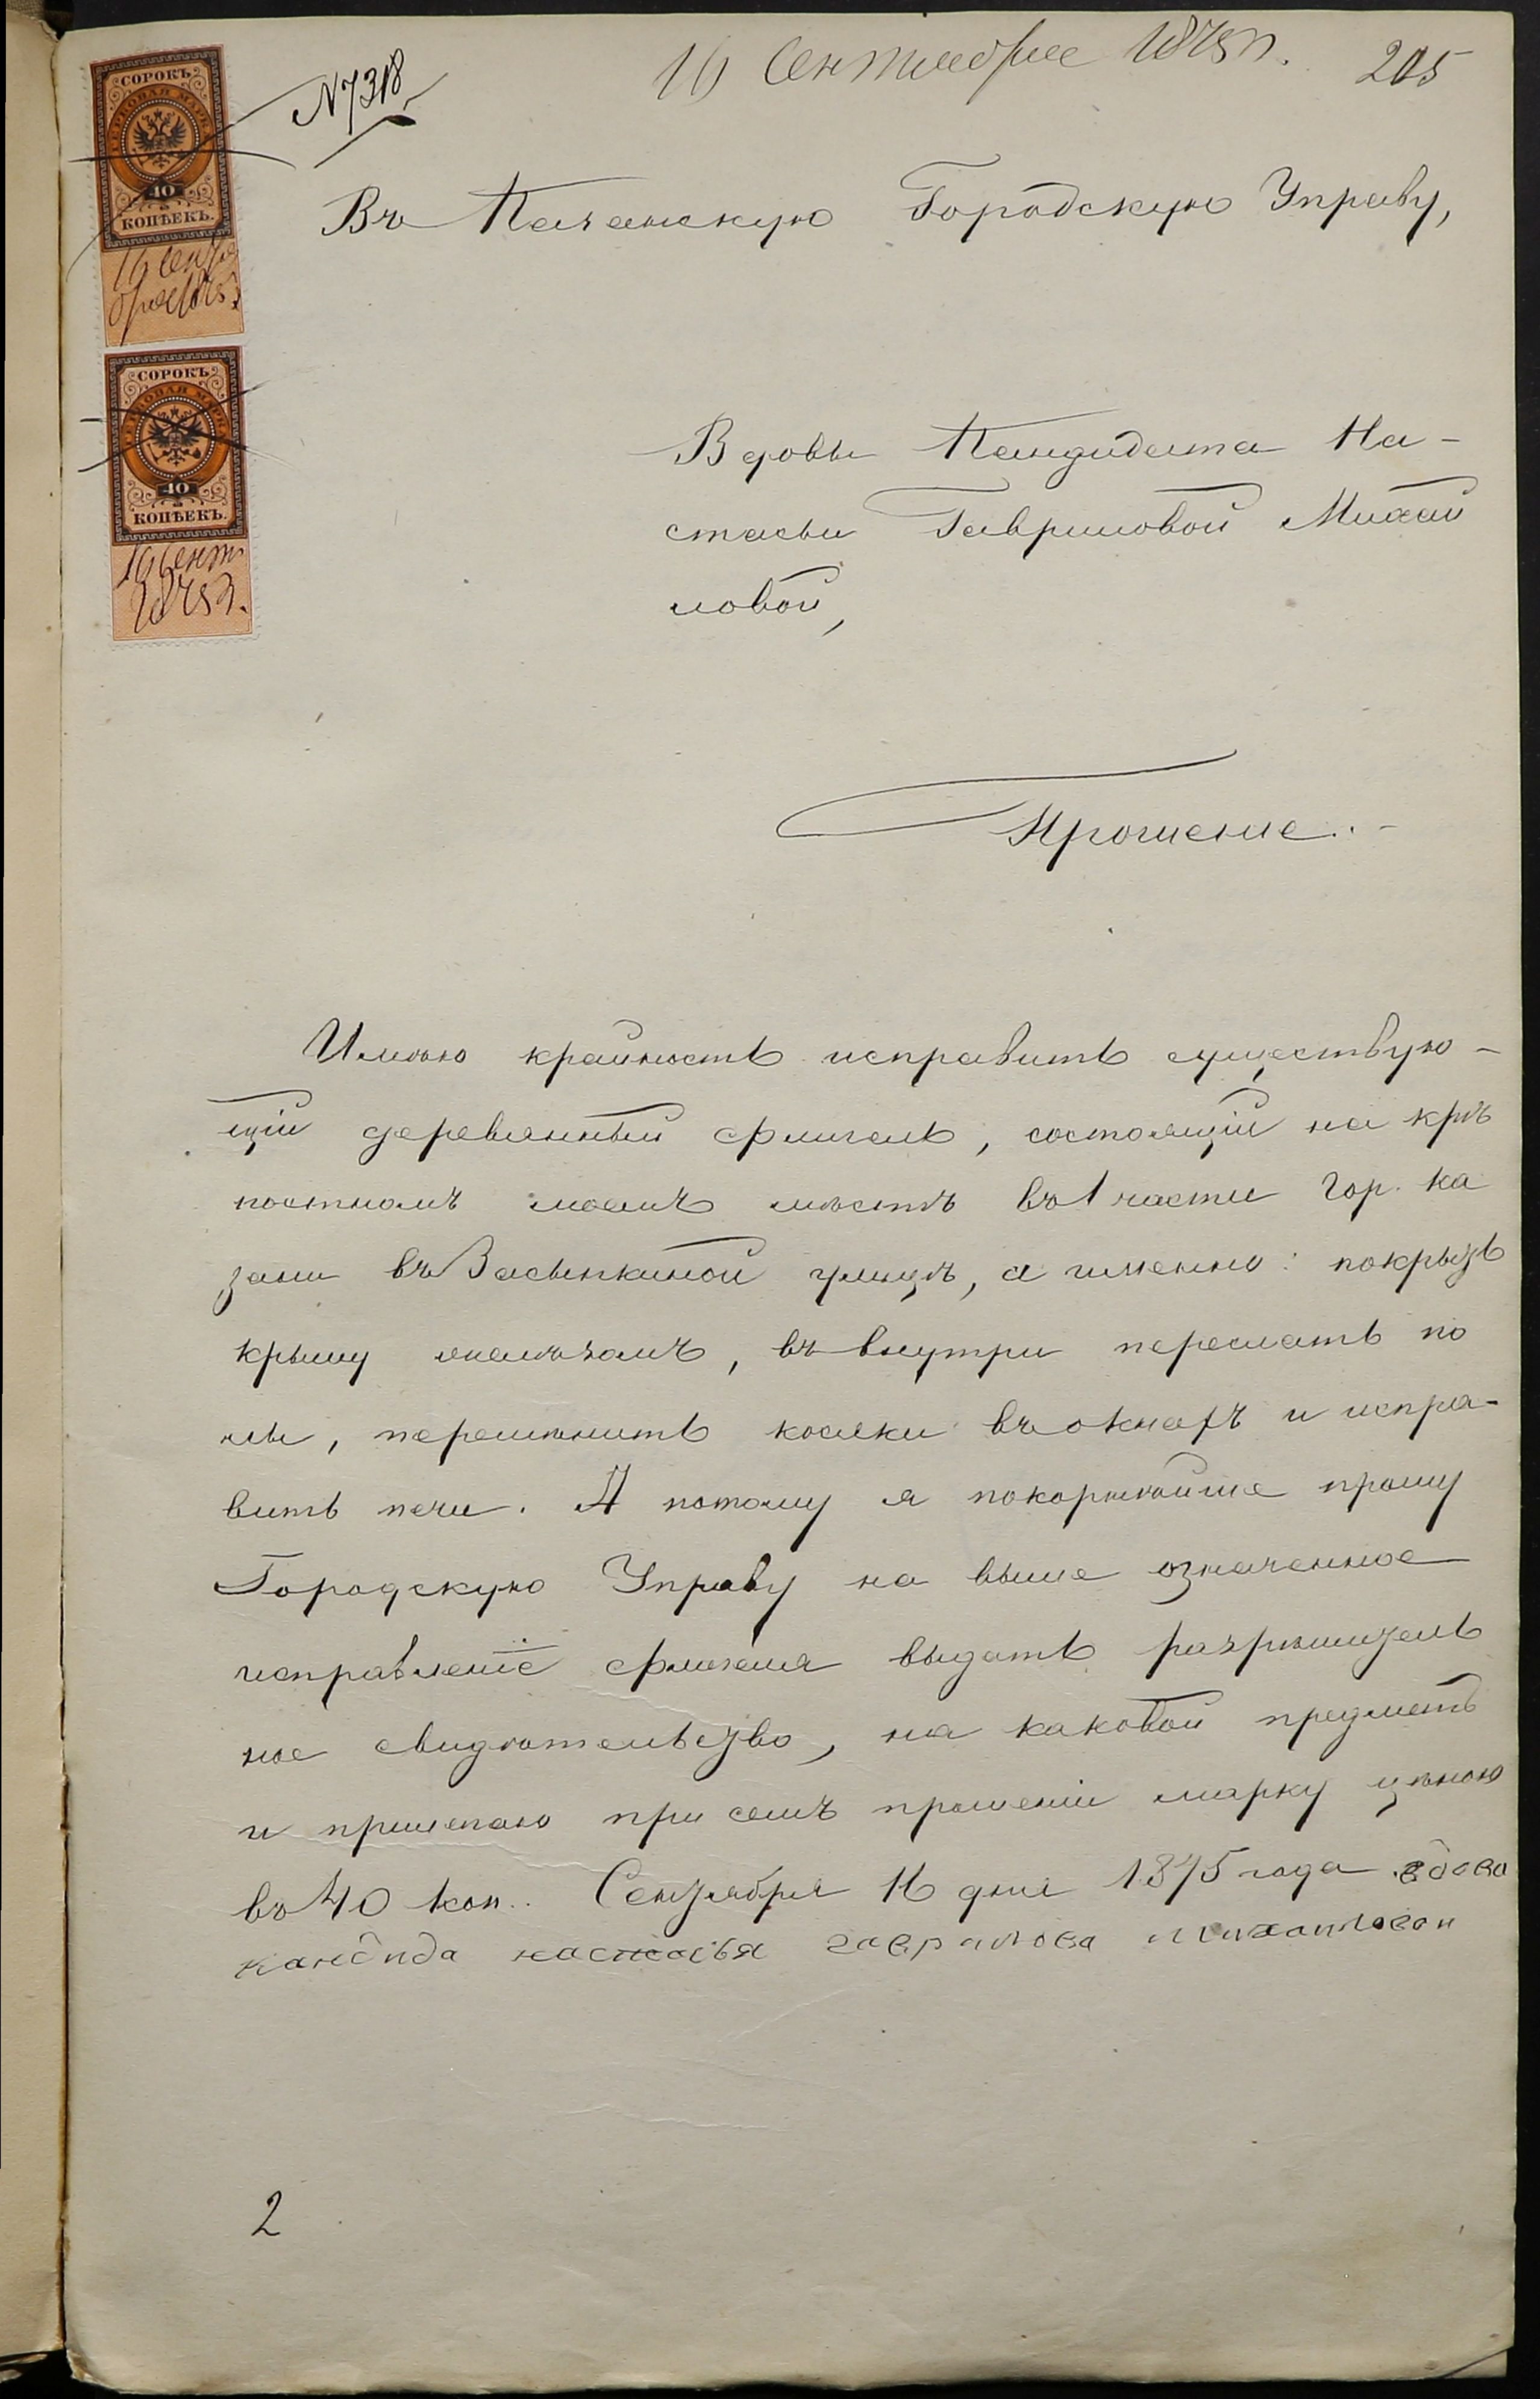 16 Сентября 1875 г.
205
№ 7318
СОРОКЪ
ГЕРБОВАЯ МАРКА
40
КОПѢЕКЪ.
16 Сентя
бря 1875 г.
СОРОКЪ
ГЕРБОВАЯ МАРКА
40
КОПѢЕКЪ.
16 Сент.
1875 г.
Въ Казанскую Городскую Управу,
Вдовы Кандидата На-
стасьи Гавриловой Михай
ловой,
Прошение.
Имѣю крайность исправить существую-
щій деревянный флигель, состоящій на крѣ
постномъ моемъ мѣстѣ въ 1 части гор. Ка
зани въ Засыпкиной улицѣ, а именно: покрыть
крышу желѣзомъ, въ внутри переслать по
лы, перемѣнить косяки въ окнахъ и испра-
вить печи. А потому я покорнѣйше прошу
Городскую Управу на выше означенное
исправленіе флигеля выдать разрѣшитель
ное свидѣтельство, на каковой предметъ
и прилагаю при семъ прошеніи марку цѣною
въ 40 коп.. Сентября 16 дня 1875 года вдова
кандида настасья гаврилова михайловаи
2